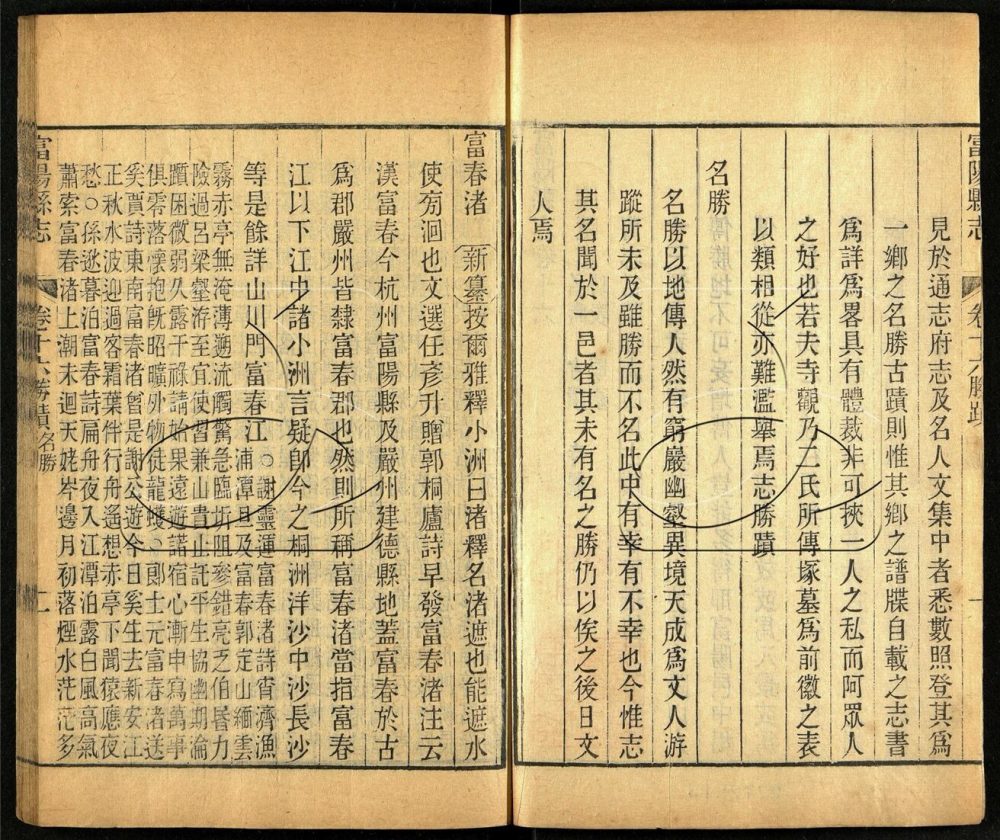 富陽縣志
卷十六勝蹟
一
見於通志府志及名人文集中者悉數照登其爲
一鄉之名勝古蹟則惟其鄉之譜牒自載之志書
爲詳爲畧具有體裁非可挾一人之私而阿眾人
之好也若夫寺觀乃二氏所傳塚墓爲前徽之表
以類相從亦難濫舉焉志勝蹟
名勝
名勝以地傳人然有窮巖幽壑異境天成爲文人游
蹤所未及雖勝而不名此中有幸有不幸也今惟志
其名聞於一邑者其未有名之勝仍以俟之後日文
人焉
富春渚 新纂按爾雅釋小洲曰渚釋名渚遮也能遮水
使旁洄也文選任彥升贈郭桐廬詩早發富春渚注云
漢富春今杭州富陽縣及嚴州建德縣地蓋富春於古
爲郡嚴州皆隸富春郡也然則所稱富春渚當指富春
江以下江中諸小洲言疑卽今之桐洲洋沙中沙長沙
等是餘詳山川門富春江○謝靈運富春渚詩宵濟漁
浦潭旦及富春郭定山緬雲
霧赤亭無淹薄遡流觸驚急臨圻阻參錯亮乏伯昏力
險過呂梁壑洊至宜便習兼山貴止託平生協幽期淪
躓困微弱久露干祿請始果遠遊諾宿心漸申寫萬事
俱零落懷抱旣昭曠外物徒龍蠖○郞士元富春渚送
奚賈詩東南富春渚曾是謝公遊今日奚生去新安江
正秋水波迎過客霜葉伴行舟遙想赤亭下聞猿應夜
愁○孫逖暮泊富春詩扁舟夜入江潭泊露白風高氣
蕭索富春渚上潮未迴天姥岑邊月初落煙水茫茫多
富陽縣志
卷十六勝蹟名勝
二